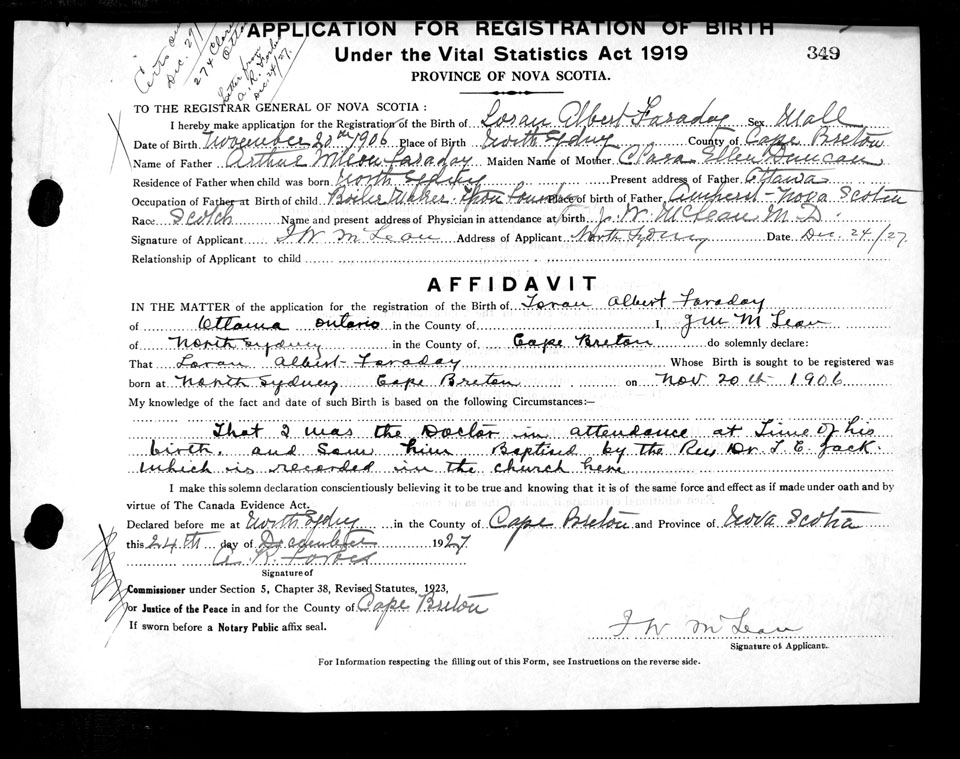 Dec. 29
274 Clar
Otta
Letter from
A. R. Forbes
Dec 24/27.
APPLICATION FOR REGISTRATION OF BIRTH
Under the Vital Statistics Act 1919
349
PROVINCE OF NOVA SCOTIA.
TO THE REGISTRAR GENERAL OF NOVA SCOTIA :
I hereby make application for the Registration of the Birth of Loran Albert Faraday Sex Male
Date of Birth November 20th 1906 Place of Birth North Sydney County of Cape Breton
Name of Father Arthur Faraday Maiden Name of Mother Clara Ellen Duncan
Residence of Father when child was born North Sydney Present address of Father Ottawa
Occupation of Father at Birth of child Boiler Maker. Place of birth of Father Amherst - Nova Scotia
Race Scotch Name and present address of Physician in attendance at birth J. W. McLean M. D.
Signature of Applicant J W McLean Address of Applicant North Sydney Date Dec. 24/27.
Relationship of Applicant to child
AFFIDAVIT
IN THE MATTER of the application for the registration of the Birth of Loran Albert Faraday
of Ottawa Ontario in the County of I, J W McLean
of North Sydney in the County of Cape Breton do solemnly declare:
That Loran Albert Faraday Whose Birth is sought to be registered was
born at North Sydney Cape Breton on Nov 20th 1906
My knowledge of the fact and date of such Birth is based on the following Circumstances:—
That I was the Doctor in attendance at Time of his
birth, and Saw him Baptised by the Rev Dr. T. E. Jack.
which is recorded in the church here
I make this solemn declaration conscientiously believing it to be true and knowing that it is of the same force and effect as if made under oath and by
virtue of The Canada Evidence Act.
Declared before me at North Sydney in the County of Cape Breton and Province of Nova Scotia
this 24th day of December 1927
A. R. Forbes
Signature of
Commissioner under Section 5, Chapter 38, Revised Statutes, 1923,
or Justice of the Peace in and for the County of Cape Breton
If sworn before a Notary Public affix seal.
J W McLean
Signature of Applicant.
For Information respecting the filling out of this Form, see Instructions on the reverse side.